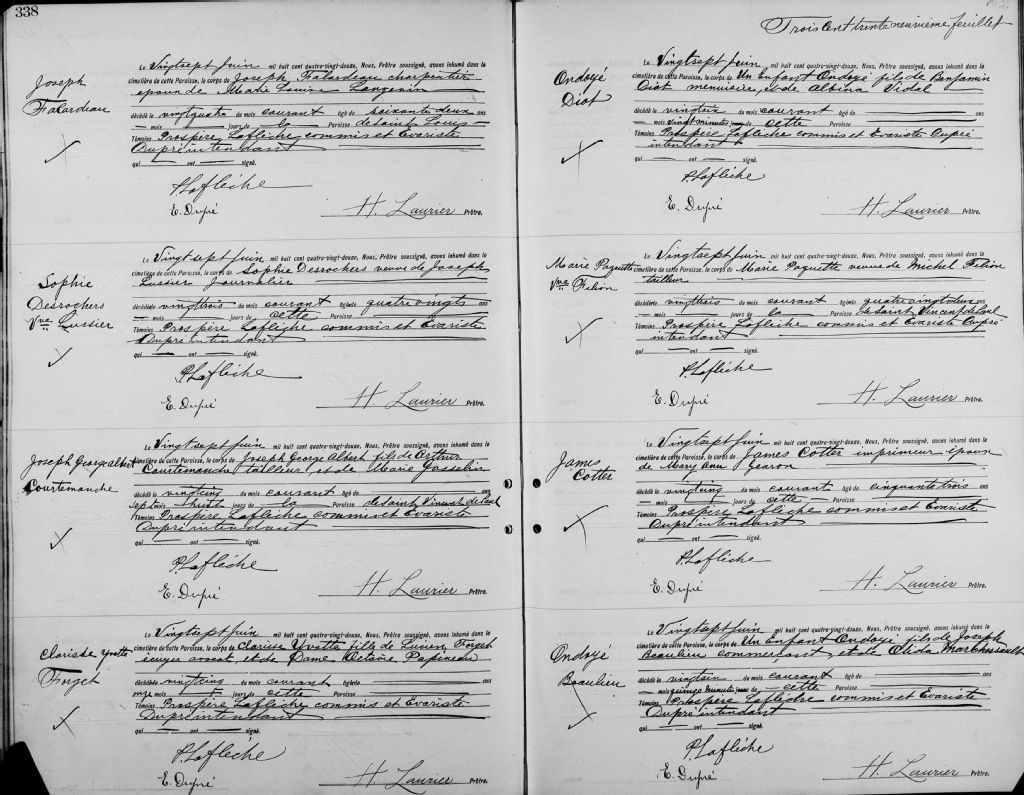 338
Joseph
Falardeau
Le Vingtsept Juin mil huit cent quatre-vingt-douze, Nous, Prêtre soussigné, avons inhumé dans la
cimetière de cette Paroisse, le corps de Joseph Falardeau charpentier
epoux de Marie Louise Langevin
décédé le vingtquatre du mois courant âgé de soixante deux ans
mois jours de la Paroisse de Saint Louis
Témoins Prospère Laflèche commis et Evariste
Dupré intendant
qui ont signé.
P. Laflèche
E. Dupré H. Laurier Prêtre.
Sophie
Desrochers
Vve Lussier
Le Vingt-sept Juin mil huit cent quatre-vingt-douze, Nous, Prêtre soussigné, avons inhumé dans la
cimetière de cette Paroisse, le corps de Sophie Desrochers veuve de Joseph
Lussier Journalier
décédée vingttrois du mois courant âgée de quatre vingts ans
mois jours de cette Paroisse
Témoins Prospère Laflèche commis et Evariste
Dupré intendant
qui ont signé.
P. Laflèche
E. Dupré H. Laurier Prêtre.
Joseph George Albert
Courtemanche
Le Vingtsept Juin mil huit cent quatre-vingt-douze, Nous, Prêtre soussigné, avons inhumé dans la
cimetière de cette Paroisse, le corps de Joseph George Albert fils de Arthur
Courtemanche tailleur et de Marie Gosselin
décédé le vingtcinq du mois courant âgé de ans
Sept mois huit jours de la Paroisse de Saint Vincent de Paul
Témoins Prospère Laflèche commis et Evariste
Dupré intendant
qui ont signé.
P. Laflèche
E. Dupré H. Laurier Prêtre.
Clarisse Yvette
Forget
Le Vingtsept Juin mil huit cent quatre-vingt-douze, Nous, Prêtre soussigné, avons inhumé dans la
cimetière de cette Paroisse, le corps de Clarisse Yvette fille de Lucien Forget
écuyer avocat et de Dame Octavie Papineau
décédé le vingtcinq du mois courant âgé de ans
onze mois jours de cette Paroisse
Témoins Prospère Laflèche commis et Evariste
Dupré intendant
qui ont signé.
P. Laflèche
E. Dupré H. Laurier Prêtre.
Trois Cent trente neuvième feuillet
Ondoyé
Diot
Le Vingtsept Juin mil huit cent quatre-vingt-douze, Nous, Prêtre soussigné, avons inhumé dans la
cimetière de cette Paroisse, le corps de Un Enfant Ondoyé fils de Benjamin
Diot menuisier, et de Albina Vidal
décédé le vingtsix du mois courant âgé de ans
mois vingt minutes jours de cette Paroisse
Témoins Prospère Laflèche commis et Evariste Dupré
intendant
qui ont signé.
P. Laflèche
E. Dupré H. Laurier Prêtre.
Marie Paquette
Vve Filion
Le Vingtsept Juin mil huit cent quatre-vingt-douze, Nous, Prêtre soussigné, avons inhumé dans la
cimetière de cette Paroisse, le corps de Marie Paquette veuve de Michel Filion
tailleur
décédée vingttrois du mois courant âgée quatre vingt deux ans
mois jours de la Paroisse de Saint Vincent de Paul
Témoins Prospère Laflèche commis et Evariste Dupré
intendant
qui ont signé.
P. Laflèche
E. Dupré H. Laurier Prêtre.
James
Cotter
Le Vingtsept Juin mil huit cent quatre-vingt-douze, Nous, Prêtre soussigné, avons inhumé dans la
cimetière de cette Paroisse, le corps de James Cotter imprimeur epoux
de Mary Ann Gearon
décédé le vingtcinq du mois courant âgé de cinquante trois ans
mois jours de cette Paroisse
Témoins Prospère Laflèche commis et Evariste
Dupré intendant
qui ont signé.
P. Laflèche
E. Dupré H. Laurier Prêtre.
Ondoyé
Beaulieu
Le Vingtsept Juin mil huit cent quatre-vingt-douze, Nous, Prêtre soussigné, avons inhumé dans la
cimetière de cette Paroisse, le corps de Un Enfant Ondoyé fils de Joseph
Beaulieu commerçant, et de Elida Marchessault
décédé le vingtsix du mois courant âgé de ans
mois quinze minutes jours de cette Paroisse
Témoins Prospère Laflèche commis et Evariste
Dupré intendant
qui ont signé.
P. Laflèche
E. Dupré H. Laurier Prêtre.